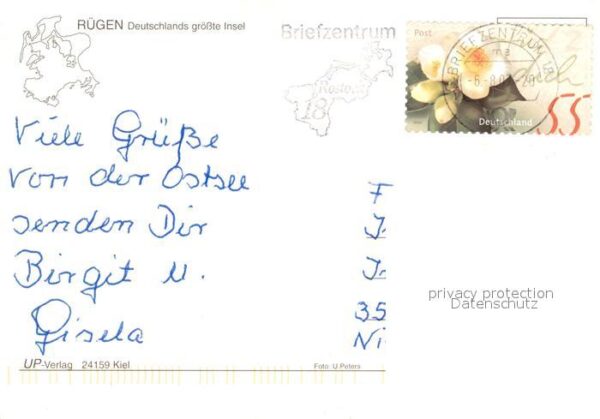 RÜGEN Deutschlands größte Insel
Briefzentrum
Rostock
18
Post
BRIEFZENTRUM 18
ma
Deutschland
55
Viele Grüße
von der Ostsee
senden Dir
Birgit u.
Gisela
F
J
J
35
Ni
privacy protection
Datenschutz
UP-Verlag 24159 Kiel
Foto: U.Peters